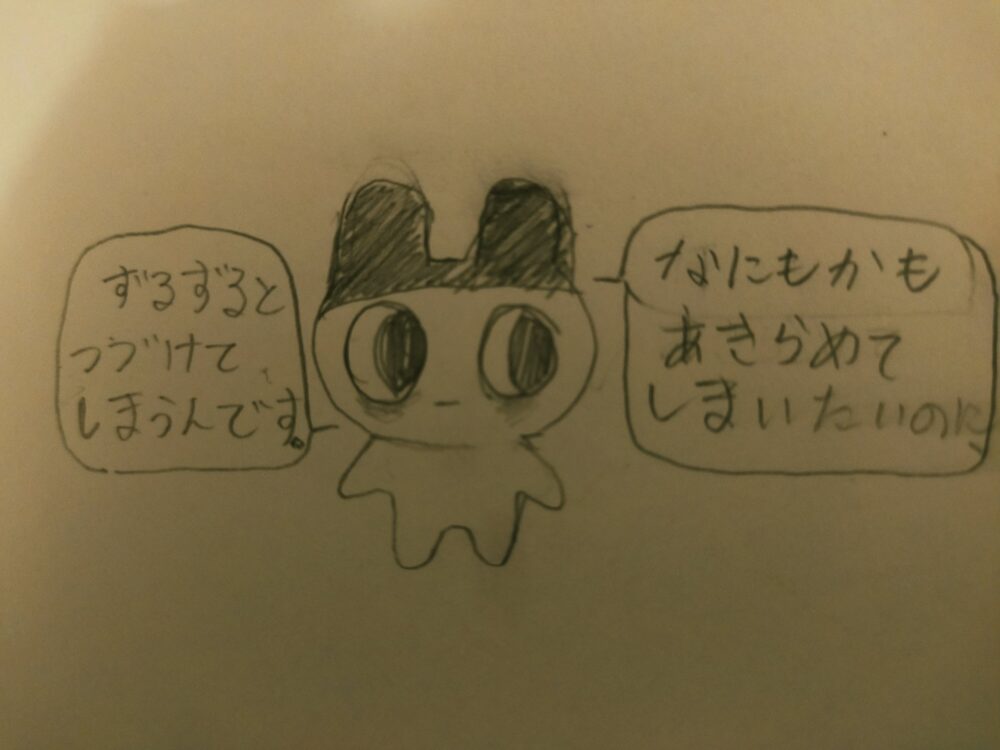 なにもかも
あきらめて
しまいたいのに、
ずるずると
つづけて
しまうんです。